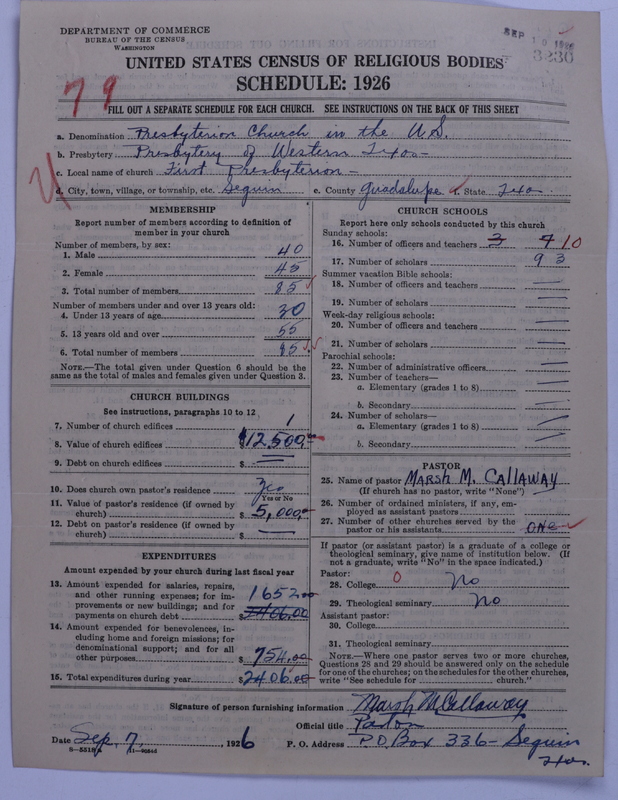 DEPARTMENT OF COMMERCE
BUREAU OF THE CENSUS
WASHINGTON
SEP 10 1926
3230
UNITED STATES CENSUS OF RELIGIOUS BODIES
SCHEDULE: 1926
79
FILL OUT A SEPARATE SCHEDULE FOR EACH CHURCH. SEE INSTRUCTIONS ON THE BACK OF THIS SHEET
a. Denomination Presbyterion Church in the U.S.
b. Presbytery Presbytery of Western Texas
c. Local name of church First Presbyterion
d. City, town, village, or township, etc. Seguin e. County Guadalupe f. State Texas
MEMBERSHIP
Report number of members according to definition of
member in your church
Number of members, by sex:
1. Male 40
2. Female 45
3. Total number of members 85
Number of members under and over 13 years old:
4. Under 13 years of age 30
5. 13 years old and over 55
6. Total number of members 85
NOTE.—The total given under Question 6 should be the
same as the total of males and females given under Question 3.
CHURCH BUILDINGS
See instructions, paragraphs 10 to 12
7. Number of church edifices 1
8. Value of church edifices $12,500
9. Debt on church edifices $
10. Does church own pastor's residence Yes
Yes or No
11. Value of pastor's residence (if owned by
church) $5,000
12. Debt on pastor's residence (if owned by
church) $
EXPENDITURES
Amount expended by your church during last fiscal year
13. Amount expended for salaries, repairs,
and other running expenses; for im-
provements or new buildings; and for
payments on church debt 1652.00
$2406.00
14. Amount expended for benevolences, in-
cluding home and foreign missions; for
denominational support; and for all
other purposes $754.00
15. Total expenditures during year $2406.00
CHURCH SCHOOLS
Report here only schools conducted by this church
Sunday schools:
16. Number of officers and teachers 3 7 10
17. Number of scholars 93
Summer vacation Bible schools:
18. Number of officers and teachers
19. Number of scholars
Week-day religious schools:
20. Number of officers and teachers
21. Number of scholars
Parochial schools:
22. Number of administrative officers
23. Number of teachers—
a. Elementary (grades 1 to 8)
b. Secondary
24. Number of scholars—
a. Elementary (grades 1 to 8)
b. Secondary
PASTOR
25. Name of pastor MARSH M. CALLAWAY
(If church has no pastor, write "None")
26. Number of ordained ministers, if any, em-
ployed as assistant pastors
27. Number of other churches served by the
pastor or his assistants ONE
If pastor (or assistant pastor) is a graduate of a college or
theological seminary, give name of institution below. (If
not a graduate, write "No" in the space indicated.)
Pastor:
28. College 0 No
29. Theological seminary No
Assistant pastor:
30. College
31. Theological seminary
NOTE.—Where one pastor serves two or more churches,
Questions 28 and 29 should be answered only on the schedule
for one of the churches; on the schedules for the other churches,
write "See schedule for church."
Signature of person furnishing information Marsh M Callaway
Official title Pastor
Date Sep. 7, 1926 P. O. Address P.O. Box 336 - Seguin
Tex.